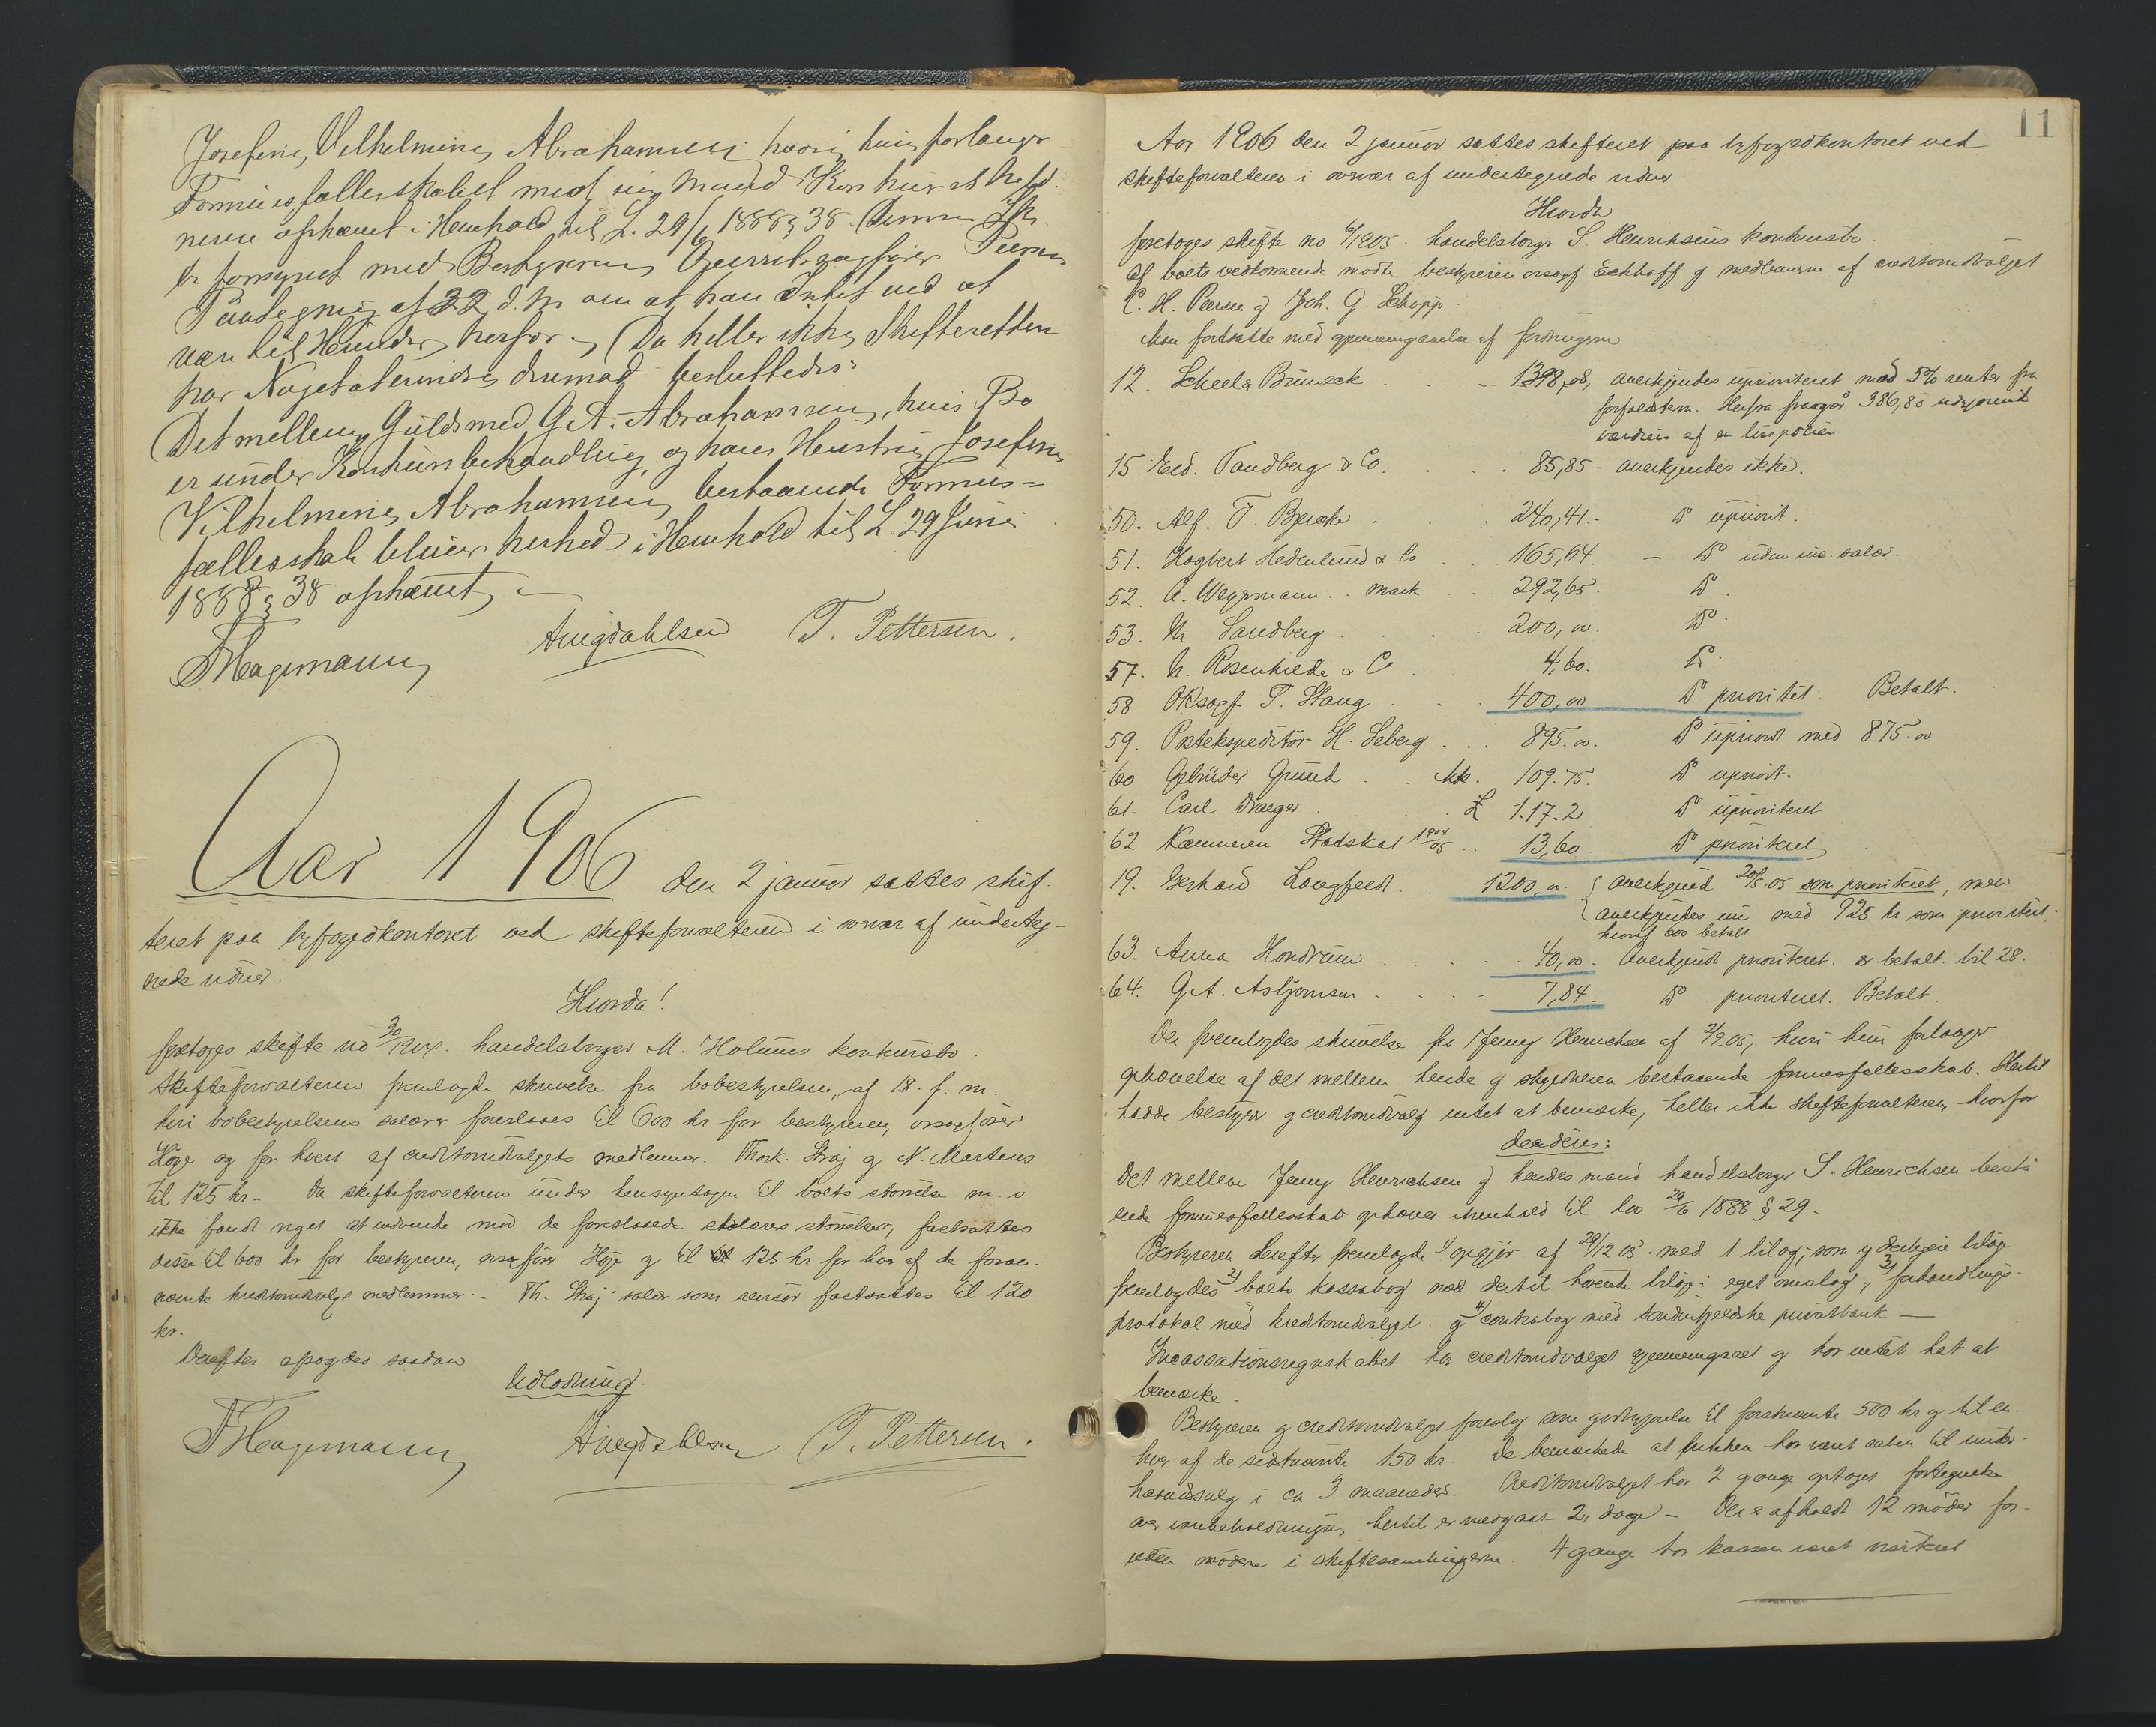 Josefine Vilhelmine Abrahamsen hvori hun forlanger
Formuesfællesskabet med sin Mand Konkursdebi-
neren ophævet i Henhold til L. 29/6 1888 § 38. Denne Skr.
er forsynet med Bestyreren Overretssagfører
Paategning af 22 d. M. om at han Intet ved at
være til Hinder herfor. Da heller ikke Skifteretten
har Noget at erindre derimod besluttedes:
Det mellem Guldsmed G. A. Abrahamsen, hvis Bo
er under Konkursbehandling og hans Hustru Josefine
Vilhelmine Abrahamsen bestaaende Formues-
fællesskab bliver herved i Henhold til L. 29 Juni
1888 § 38 ophævet.
FHagemann Amgdahlsen T. Pettersen.
Aar 1906 den 2 januar sattes skif-
teret paa byfogedkontoret ved skifteforvalteren i overvær af underteg-
nede vidner.
Hvorda!
foretoges skifte no 30/1904. handelsborger M. Holmes konkursbo.
Skifteforvalteren fremlagde skrivelse fra bobestyrelsen, af 18. f. m.
hvori bobestyrelsens salærer foreslaaes til 600 kr for bestyreren, orsagfører
Høye og for hvert af creditorudvalgets medlemmer. Th. Skaj og N. Martens
til 125 kr. - Da skifteforvalteren under hensyntagen til boets størrelse m. v
ikke fandt noget at indvende mod de foreslaaede salærers størrelser, fastsattes
disse til 600 kr for bestyreren, orsagfører Høye og til 125 kr for hver af de foran-
nævnte kreditorudvalgs medlemmer. - Th. Skaj's salær som revisor fastsattes til 120
kr.
Derefter afsagdes saadan
Udlodning.
FHagemann Amgdahlsen T. Pettersen.
11
Aar 1906 den 2 januar sattes skifteret paa byfogedkontoret ved
skifteforvalteren i overvær af undertegnede vidner
Hvorda
foretoges skifte no 6/1905. handelsborger S. Henrichsens konkursbo.
Af boets vedkommende mødte bestyreren orsagf Eckhoff og medlemmerne af creditorudvalget
C. H. Pærsen og Joh. G. Schopp.
Man fortsatte med gjennemgaaelse af fordringerne
12. Scheel & Büneck . . 1398,08, anerkjendes uprioriteret med 5% renter fra
forfaldstim. Herfra fragaar 386,80 udgjørende
værdien af en livspolice
15 Eed. Tandberg & Co. . . 85,85 - anerkjendes ikke.
50. Alf. T. Bjercke . . 240,41. - Do upriorit.
51. Hogbert Hedenlund & Co . . 165,64. - Do uden salær.
52. A. Wegermann . . mark . . 292,65. Do.
53. M. Sandberg . . . 200,00. Do.
57. N. Rosenkilde & Co . 4,60. Do.
58 ORsagf T. Stang . . . 400,00 Do prioritet. Betalt.
59. Postekspeditør H. Seberg . . . 895.00. Do upriorit med 875.00
60 Gebrüder Grund . . Mk. 109.75. Do upriorit.
61. Carl Draeger . . . £ 1.17.2 Do uprioriteret
62 Kæmneren Stadskat 1904/05 . . 13,60. Do prioriteret
19. Gerhard Langfeldt. . . 1200,00. anerkjend 20/5.05 som prioritæret, men
anerkjendes nu med 925 kr som prioritært.
hvoraf 600 betalt
63. Anna Hondrum . . . . 40,00. - Anerkjendt prioriteret. er betalt. bil 28.
64. G. A. Asbjørnsen . . . - 7,84. Do prioriteret. Betalt.
Der fremlagdes skrivelse fra Jenny Henrichsen af 2/9.05, hvori hun forlanger
ophævelse af det mellem hende og skyldneren bestaaende formuesfællesskab. Hertil
hadde bestyrer og creditorudvalg intet at bemærke, heller ikke skifteforvalteren hvorfor
decideres:
Det mellem Jenny Henrichsen og hendes mand handelsborger S. Henrichsen bestaa-
ende formuesfællesskab ophæves i henhold til lov 29/6 1888 § 29.
Bestyreren derefter fremlagde 1) opgjør af 29/12 05. med 1 bilag, som
fremlagdes 2) boets kassabog med dertil hørende bilag i eget omslag, 3) forhandlings-
protokol med kreditorudvalget. og 4) contrabog med søndenfjeldske privatbank —
Incassationsregnskabet har creditorudvalget gjennemgaaet og har intet hat at
bemærke.
Bestyreren og creditorudvalget foreslog som godtgjørelse til førstnævnte 500 kr og til en-
hver af de sidstnævnte 150 kr. De bemærkede at butikken har været aaben til under-
haandssalg i ca 3 maaneder. Creditorudvalget har 2 gange optaget fortegnelse
over varebeholdningen, hertil er medgaaet 2 dage - Der er afholdt 12 møder for-
uden møderne i skiftesamlingerne. 4 gange har kassen været revideret